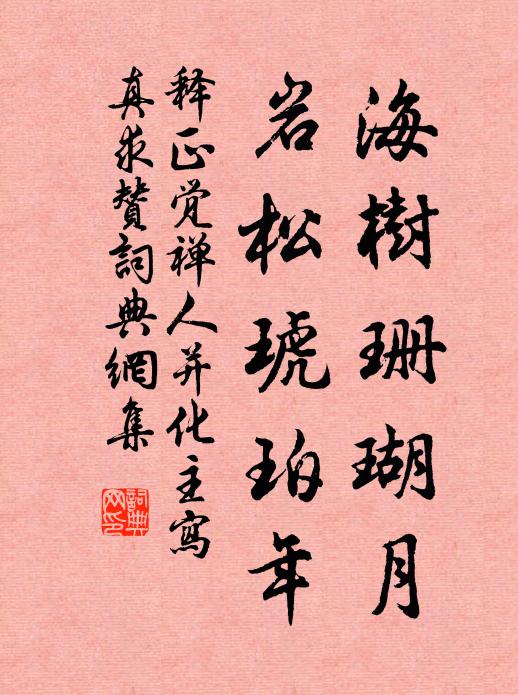 海樹珊瑚月
岩松琥珀年
释正觉禅人并化主寫
真求赞詞典網集
詞典網印